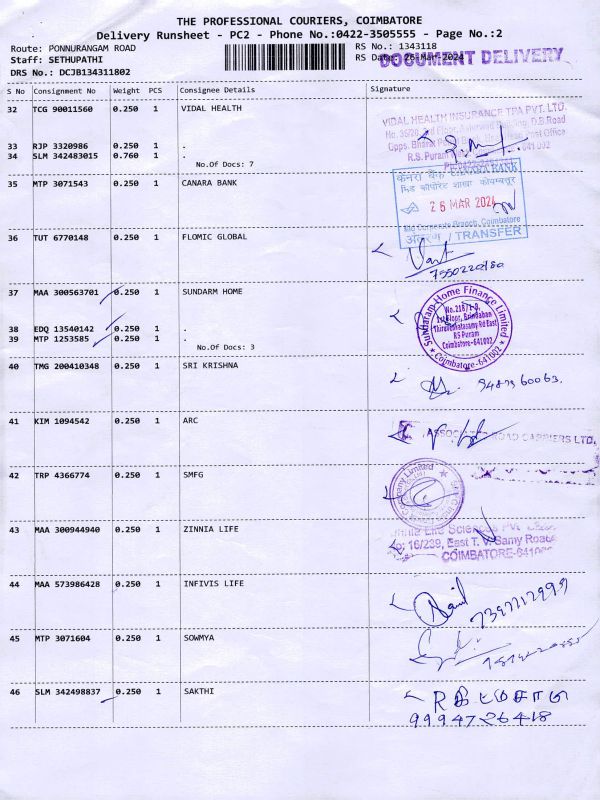 THE PROFESSIONAL COURIERS, COIMBATORE
Delivery Runsheet - PC2 - Phone No.:0422-3505555 - Page No.:2
Route: PONNURANGAM ROAD
Staff: SETHUPATHI
DRS No.: DCJB134311802
RS No.: 1343118
RS Date: 26-Mar-2024
DOCUMENT DELIVERY
S No Consignment No Weight PCS Consignee Details Signature
32 TCG 90011560 0.250 1 VIDAL HEALTH
VIDAL HEALTH INSURANCE TPA PVT. LTD.
33 RJP 3320986 0.250 1 .
34 SLM 342483015 0.760 1 .
No.Of Docs: 7
R.S. Puram
35 MTP 3071543 0.250 1 CANARA BANK
केनरा बैंक CANARA BANK
26 MAR 2024
Mid Corporate Branch, Coimbatore
अंतरण / TRANSFER
36 TUT 6770148 0.250 1 FLOMIC GLOBAL
37 MAA 300563701 0.250 1 SUNDARM HOME
Sundaram Home Finance Limited
No.218/1-9,
1st Floor, Brindaban
Thiruvenkatasamy Rd East
RS Puram
Coimbatore-641002
Coimbatore-641002
38 EDQ 13540142 0.250 1 .
39 MTP 1253585 0.250 1 .
No.Of Docs: 3
40 TMG 200410348 0.250 1 SRI KRISHNA
41 KIM 1094542 0.250 1 ARC
ASSOCIATED ROAD CARRIERS LTD.
42 TRP 4366774 0.250 1 SMFG
43 MAA 300944940 0.250 1 ZINNIA LIFE
No: 16/239, East T. V. Samy Road
COIMBATORE-641002
44 MAA 573986428 0.250 1 INFIVIS LIFE
45 MTP 3071604 0.250 1 SOWMYA
46 SLM 342498837 0.250 1 SAKTHI
9994726418